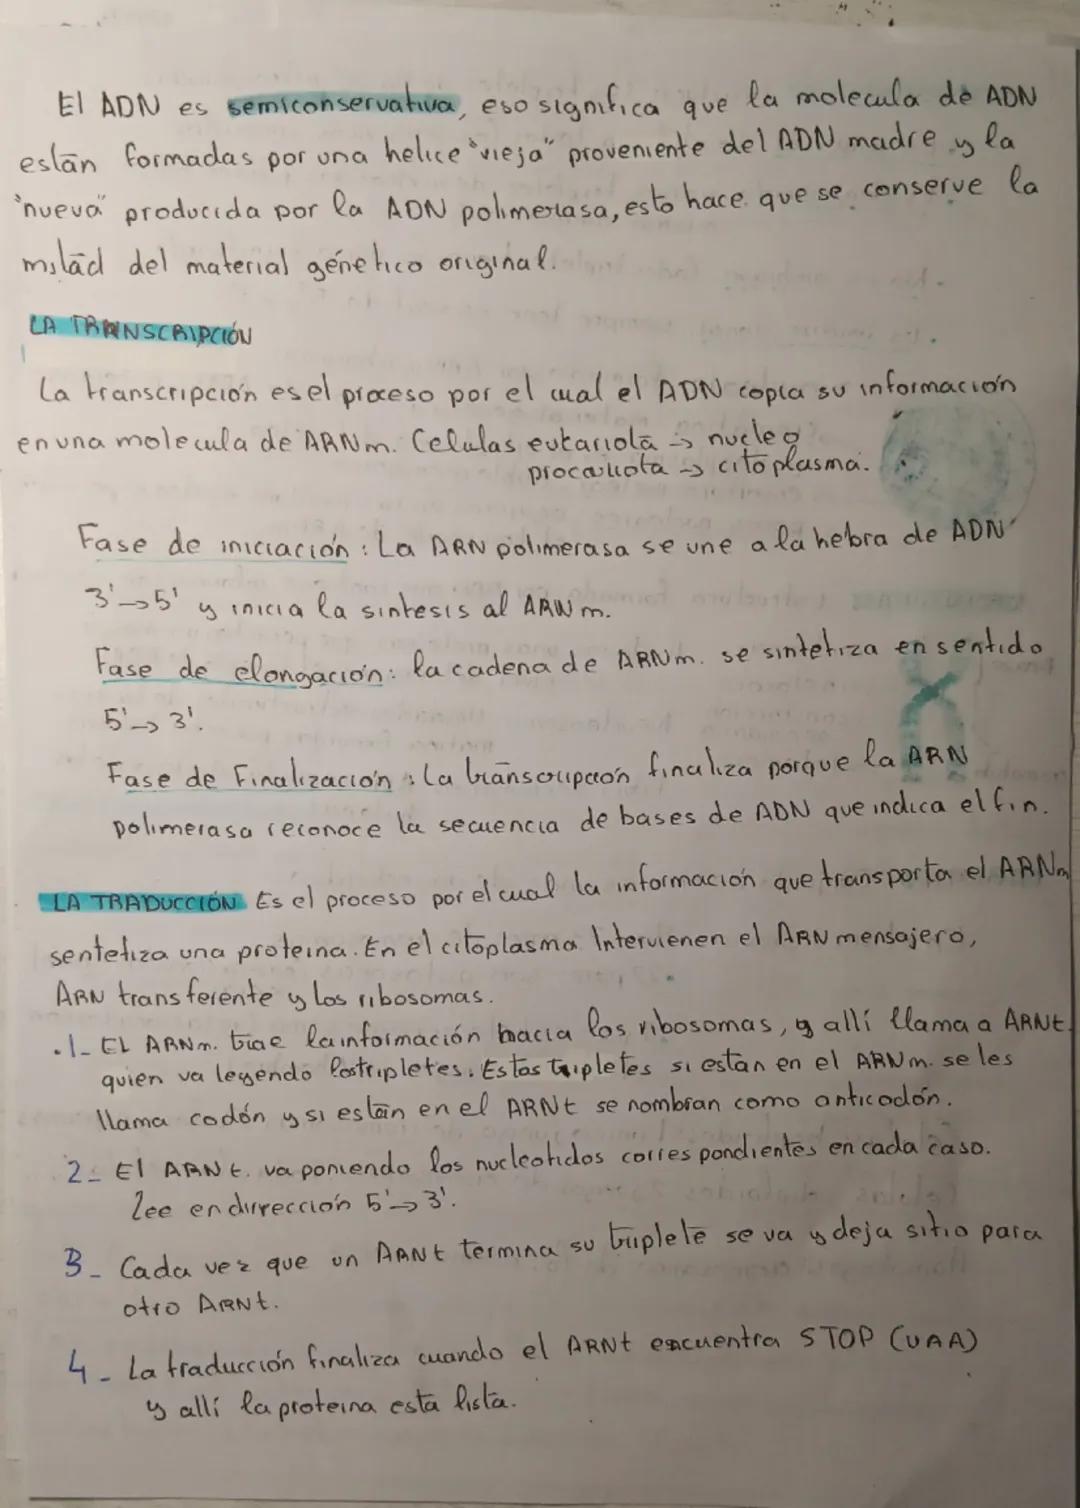 El ADN es semiconservativa, eso significa que la molecula de ADN
están formadas por una helice "vieja" proveniente del ADN madre y la
"nueva" producida por la ADN polimerasa, esto hace que se conserve la
mitad del material génetico original.
LA TRANSCRIPCIÓN
La transcripción es el proceso por el cual el ADN copia su información
en una molecula de ARNm. Celulas eukariota → nucleo
procariota → citoplasma.
Fase de iniciación: La ARN polimerasa se une a la hebra de ADN
3'→5' y inicia la sintesis al ARNm.
Fase de elongación: la cadena de ARNm. se sintetiza en sentido
5'→3'.
Fase de Finalización: La transcripción finaliza porque la ARN
polimerasa reconoce la secuencia de bases de ADN que indica el fin.
LA TRADUCCIÓN Es el proceso por el cual la información que transporta el ARNm
sentetiza una proteina. En el citoplasma Intervienen el ARN mensajero,
ARN transferente y los ribosomas.
.1- EL ARNm. trae la información hacia los ribosomas, y allí llama a ARNt.
quien va leyendo los tripletes. Estos tripletes si estan en el ARNm. se les
llama codón y si están en el ARNt se nombran como anticodón.
2- El ARNt. va poniendo los nucleotidos correspondientes en cada caso.
Lee en dirrección 5'→3'.
3- Cada vez que un ARNt termina su triplete se va y deja sitio para
otro ARNt.
4- La traducción finaliza cuando el ARNt encuentra STOP (UAA)
y allí la proteina esta lista.